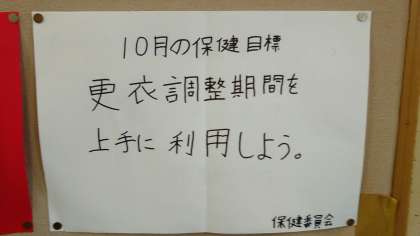 10月の保健目標
更衣調整期間を
上手に利用しよう。
保健委員会